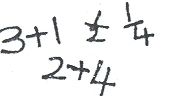 3+1 ± 1/4
2+4